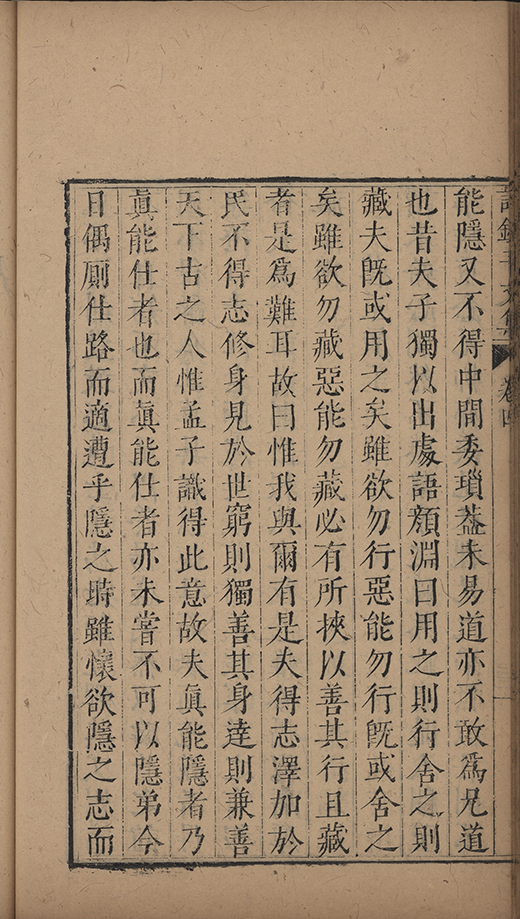 卷四
能隱又不得中間委瑣葢未易道亦不敢爲兄道
也昔夫子獨以出處語顏淵曰用之則行舍之則
藏夫旣或用之矣雖欲勿行惡能勿行旣或舍之
矣雖欲勿藏惡能勿藏必有所挾以善其行且藏
者是爲難耳故曰惟我與爾有是夫得志澤加於
民不得志修身見於世窮則獨善其身達則兼善
天下古之人惟孟子識得此意故夫眞能隱者乃
眞能仕者也而眞能仕者亦未嘗不可以隱弟今
日偶厠仕路而適遭乎隱之時雖懷欲隱之志而